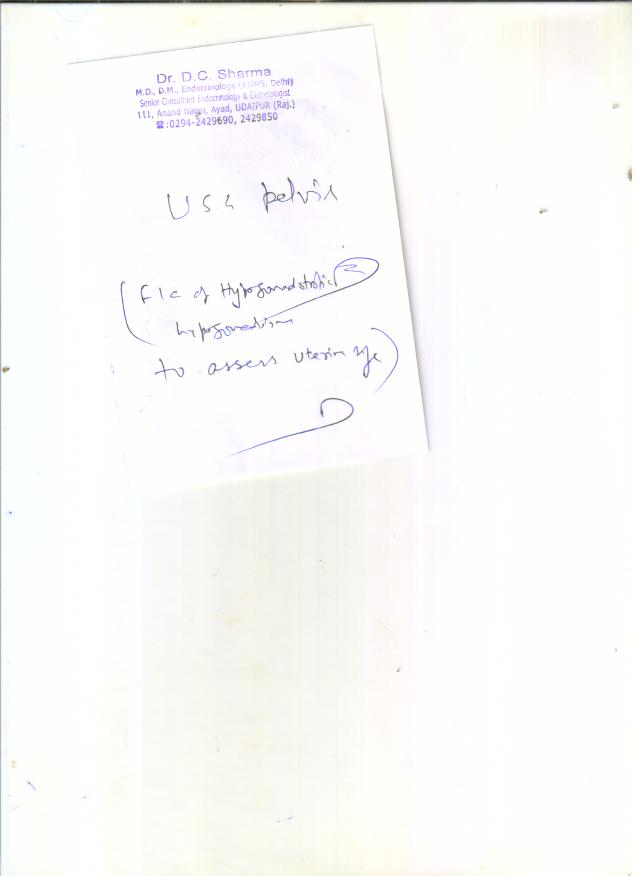 Dr. D.C. Sharma
M.D., D.M., Endocrinology (AIIMS, Delhi)
Senior Consultant Endocrinology & Diabetologist
111, Anand Nagar, Ayad, UDAIPUR (Raj.)
☎:0294-2429690, 2429850
USG pelvis
(F/c of Hypogonadotrophic
hypogonadism
to assess uterine size)